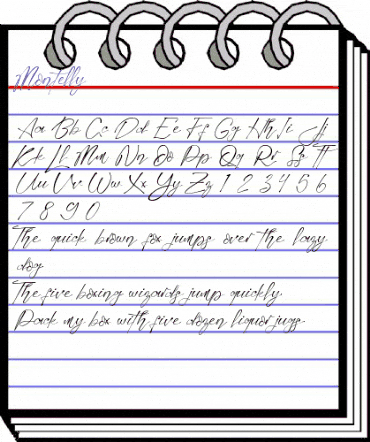 Montelly
Aa Bb Cc Dd Ee Ff Gg Hh Ii Jj
Kk Ll Mm Nn Oo Pp Qq Rr Ss Tt
Uu Vv Ww Xx Yy Zz 1 2 3 4 5 6
7 8 9 0
The quick brown fox jumps over the lazy
dog
The five boxing wizards jump quickly.
Pack my box with five dozen liquor jugs.